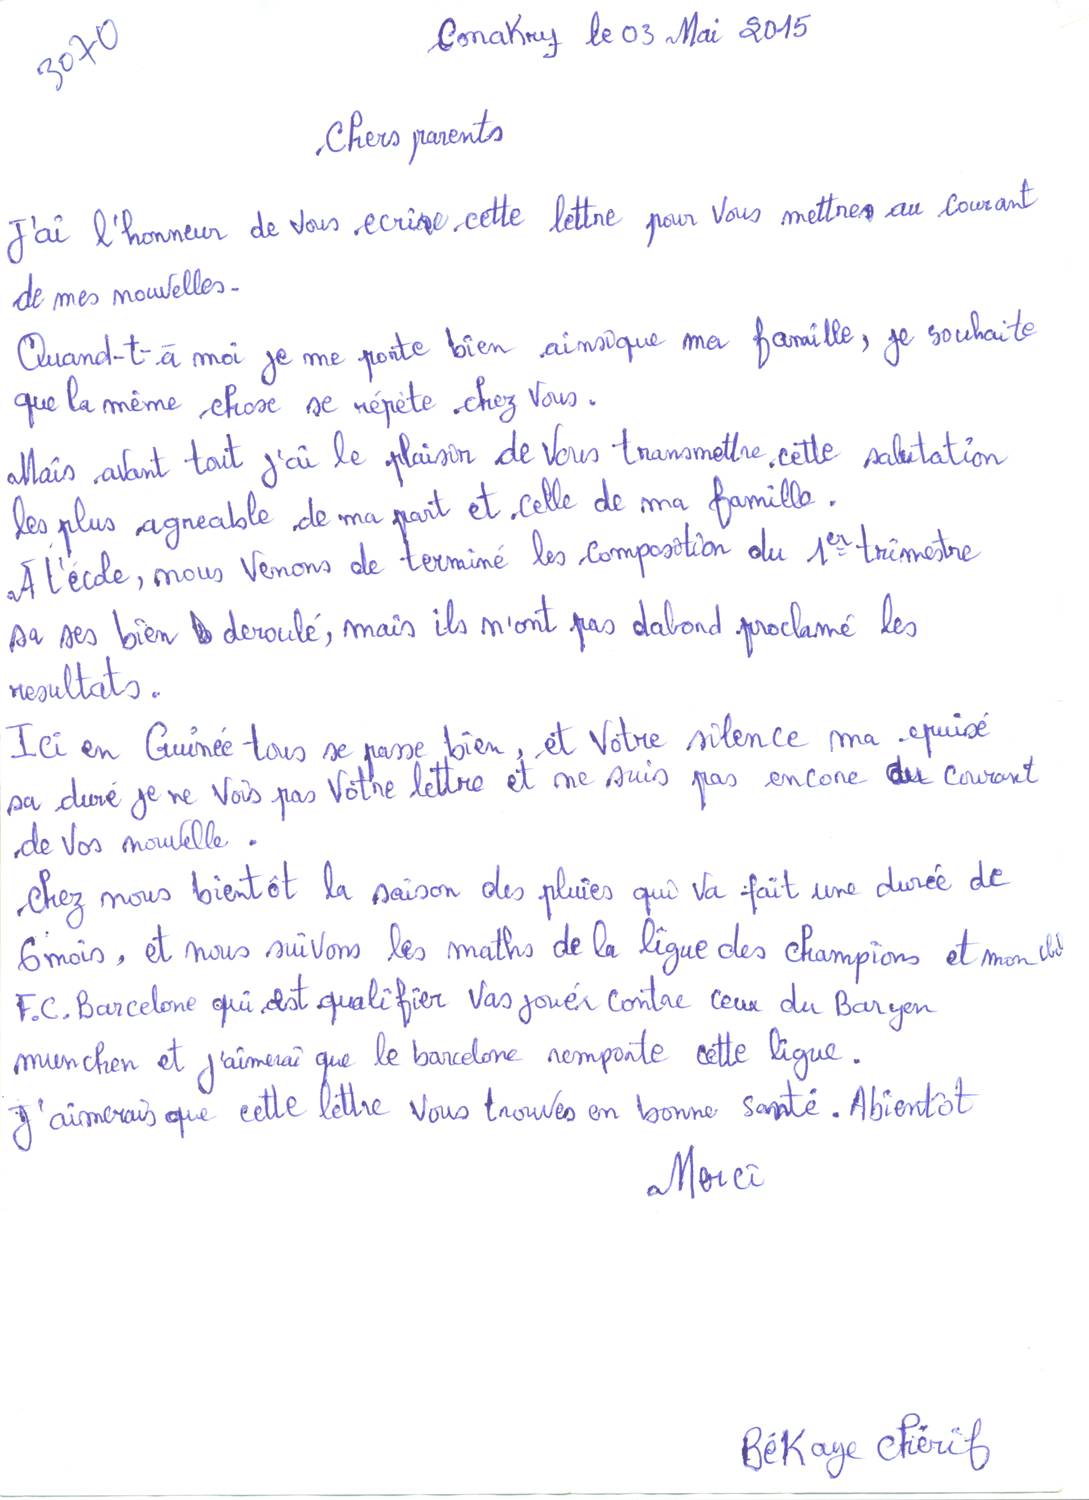 3070
Conakry le 03 Mai 2015
Chers parents
J'ai l'honneur de vous ecrire cette lettre pour vous mettres au courant
de mes nouvelles.
Quand-t-à moi je me porte bien ainsique ma famille, je souhaite
que la même chose se répète chez vous.
Mais avant tout j'ai le plaisir de vous transmettre cette salutation
les plus agreable de ma part et celle de ma famille.
A l'école, nous venons de terminé les composition du 1er trimestre
sa ses bien deroulé, mais ils n'ont pas dabord proclamé les
resultats.
Ici en Guinée tous se passe bien, et votre silence ma epuisé
sa duré je ne vois pas votre lettre et ne suis pas encore au courant
de vos nouvelle.
Chez nous bientôt la saison des pluies qui va fait une durée de
6 mois, et nous suivons les maths de la ligue des champions et mon
F.C. Barcelone qui est qualifier vas jouér contre ceux du Baryen
munchen et j'aimerai que le barcelone remporte cette ligue.
J'aimerais que cette lettre vous trouvés en bonne santé. Abientôt
Merci
BéKaye chérif